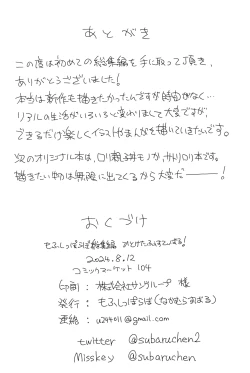 あとがき
この度は初めての総集編を手に取って頂き、
ありがとうございました!
本当は新作も描きたかったんですが時間がなく…
リアルの生活がいろいろ変わりまして大変ですが、
できるだけ楽しくイラストやまんがを描いていきたいです。
次のオリジナル本は、ロリ親子丼モノか、サバリロリ本です。
描きたい物は無限に出てくるから大変だ――――!
おくづけ
もふしっぽらぼ総集編
2024.8.12
コミックマーケット104
印刷 : 株式会社サングループ 様
発行 : もふしっぽらぼ
連絡 : u244011@gmail.com
twitter @subaruchen2
Misskey @subaruchen